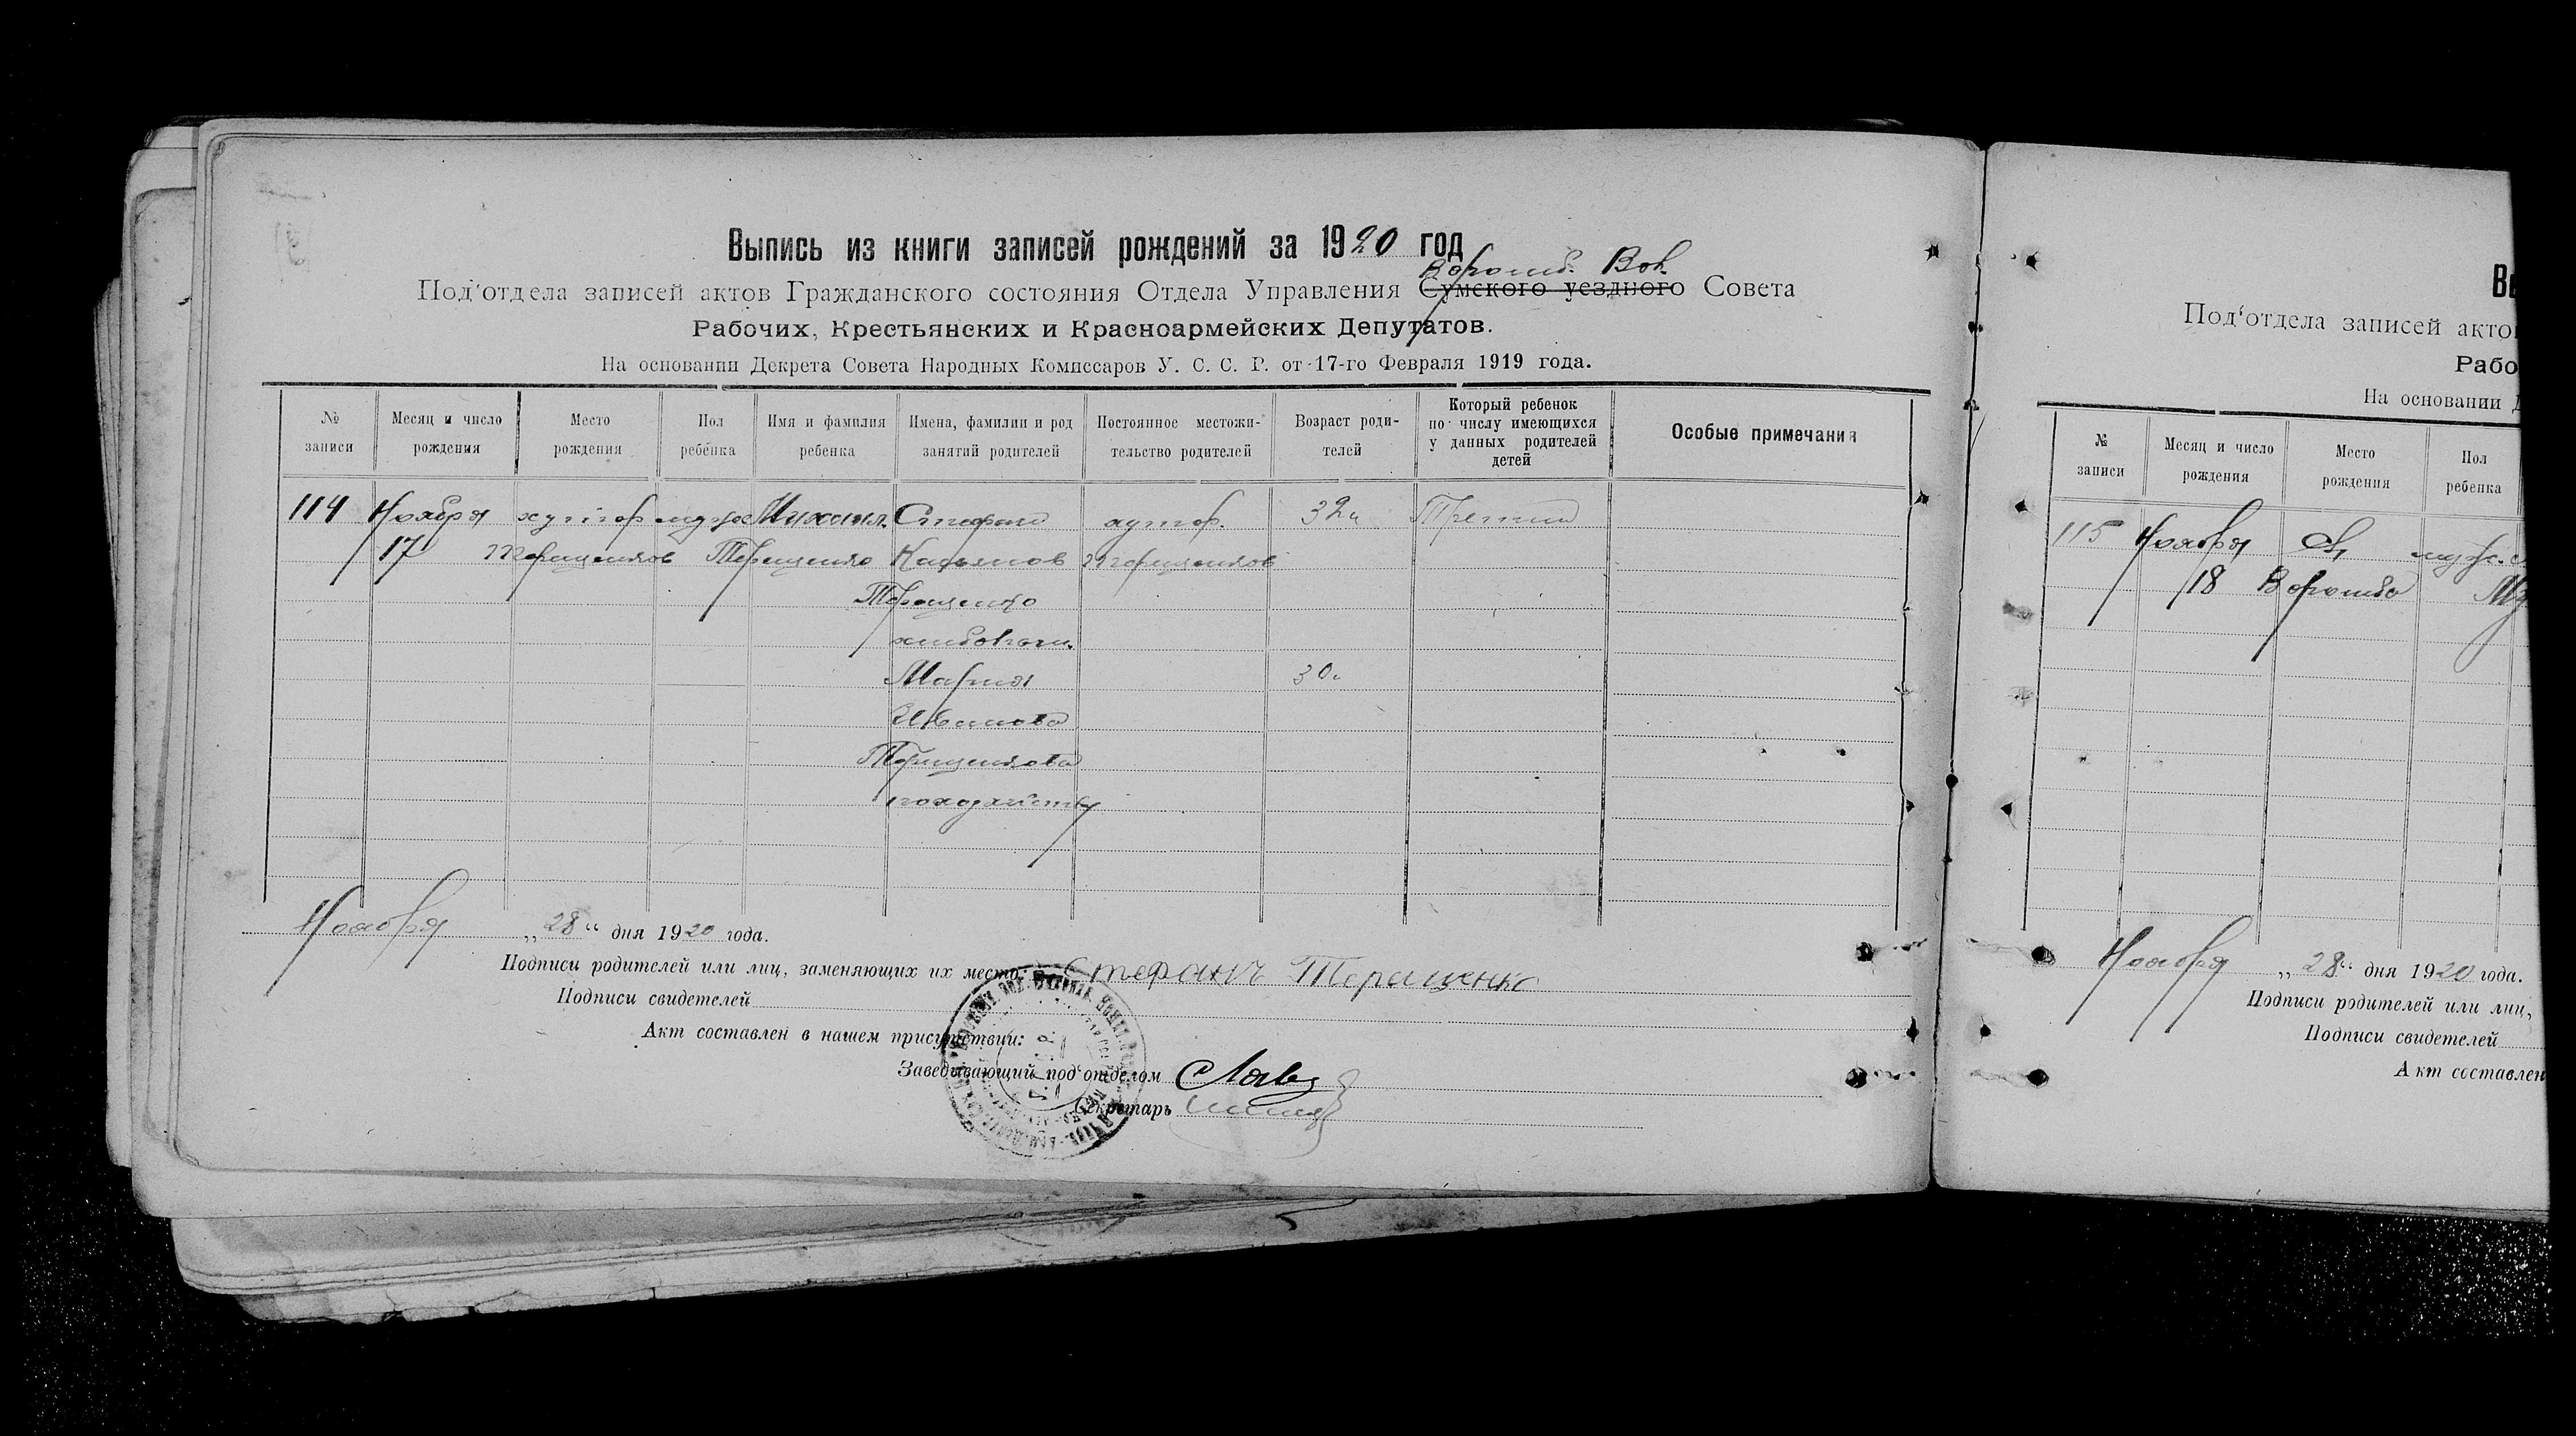 Выпись из книги записей рождений за 1920 год
Ворожб. Вол.
Под'отдела записей актов Гражданского состояния Отдела Управления Сумского уездного Совета
Рабочих, Крестьянских и Красноармейских Депутатов.
На основании Декрета Совета Народных Комиссаров У. С. С. Р. от 17-го Февраля 1919 года.
№ записи
Месяц и число рождения
Место рождения
Пол ребенка
Имя и фамилия ребенка
Имена, фамилии и род занятий родителей
Постоянное местожительство родителей
Возраст родителей
Который ребенок по числу имеющихся у данных родителей детей
Особые примечания
114 Ноября хутор муж Михаил Стефан хутор. 32 Третий
17 Терещенков Терещенко Касьянов Терещенков
Терещенко
хлебопаш.
Мария 30
Иванова
Терещенкова
Ноября „28“ дня 1920 года.
Подписи родителей или лиц, заменяющих их место: Стефанъ Терещенко
Подписи свидетелей
Акт составлен в нашем присутствии:
Заведывающий под'отделом
Секретарь
Вы
Под'отдела записей акто
Рабо
На основании Д
№ записи
Месяц и число рождения
Место рождения
Пол ребенка
115 Ноября С. муж.
18 Ворожба
Ноября „28“ дня 1920 года.
Подписи родителей или лиц,
Подписи свидетелей
Акт составлен